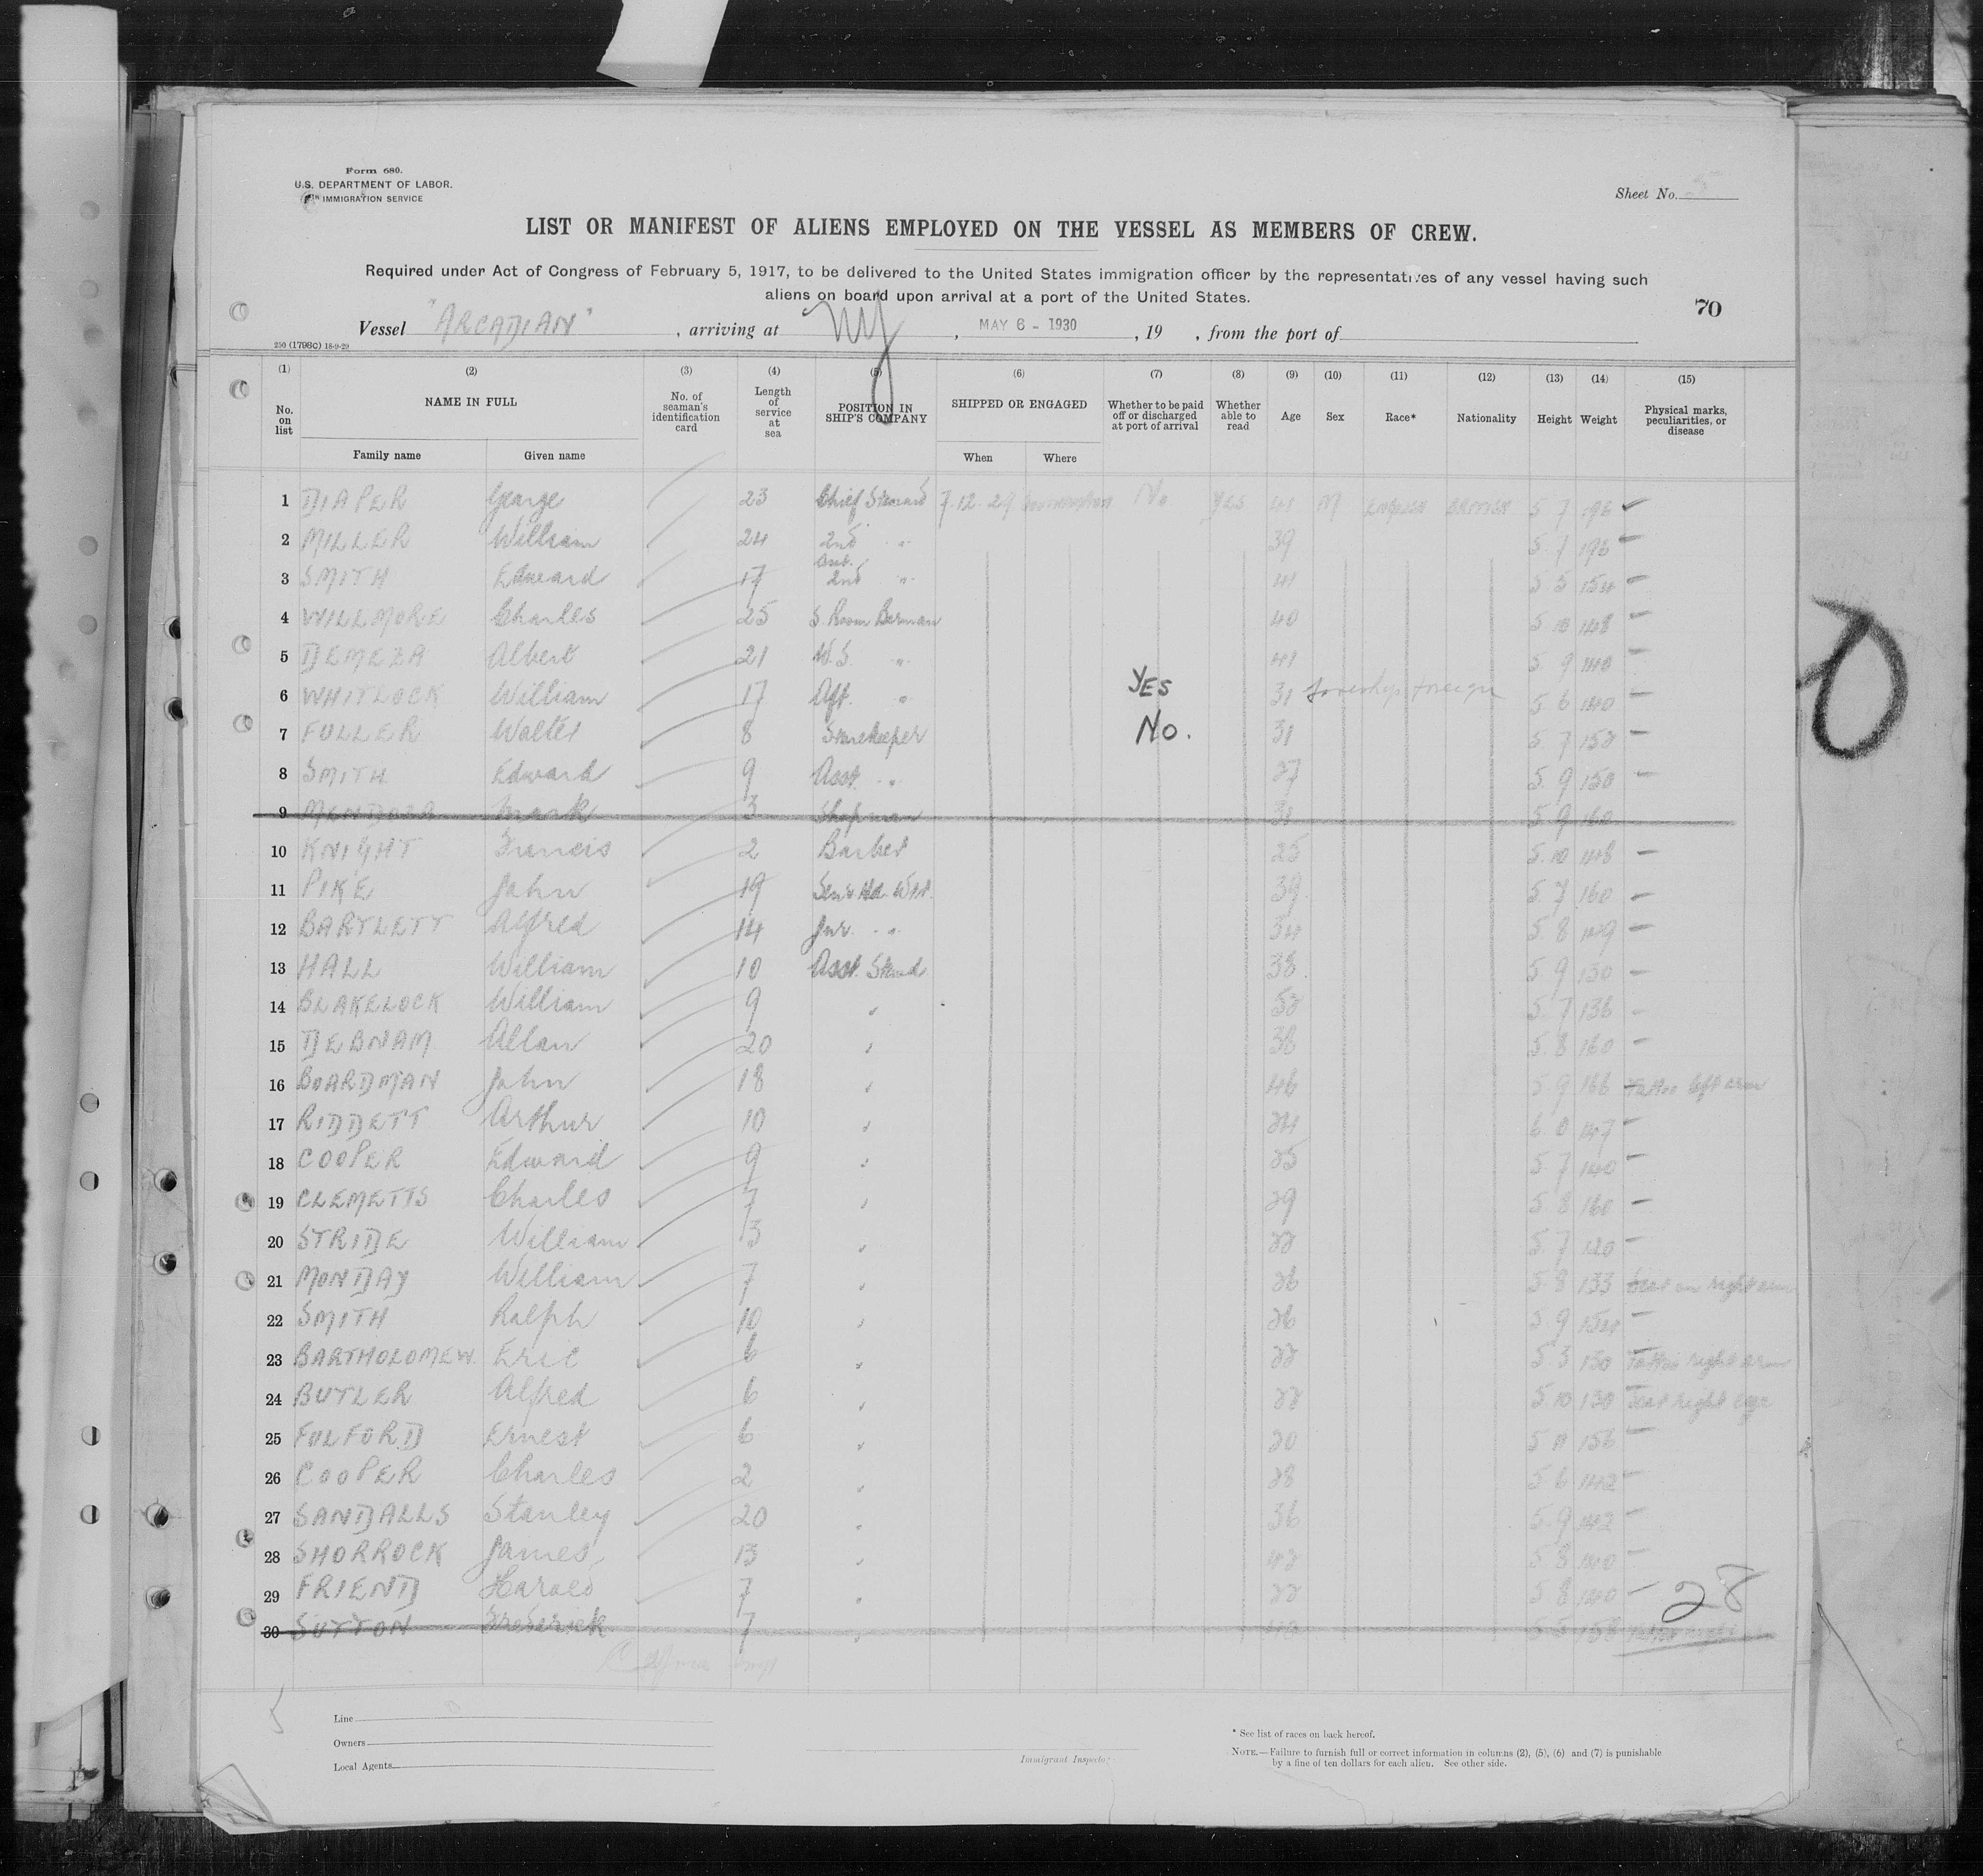 Form 680.
U.S. DEPARTMENT OF LABOR.
IMMIGRATION SERVICE
Sheet No. 5
LIST OR MANIFEST OF ALIENS EMPLOYED ON THE VESSEL AS MEMBERS OF CREW.
Required under Act of Congress of February 5, 1917, to be delivered to the United States immigration officer by the representatives of any vessel having such
aliens on board upon arrival at a port of the United States.
70
Vessel "ARCADIAN", arriving at NY, MAY 6 - 1930, 19 , from the port of
250 (1798C) 18-9-29
(1) (2) (3) (4) (5) (6) (7) (8) (9) (10) (11) (12) (13) (14) (15)
No. on list NAME IN FULL No. of seaman's identification card Length of service at sea POSITION IN SHIP'S COMPANY SHIPPED OR ENGAGED Whether to be paid off or discharged at port of arrival Whether able to read Age Sex Race* Nationality Height Weight Physical marks, peculiarities, or disease
Family name Given name When Where
1 DIAPER George 23 Chief Steward 7.12.29 Southampton No YES 41 M ENGLISH BRITISH 5 7 196
2 MILLER William 24 2nd " 39 5 7 196
3 SMITH Edward 17 Asst. 2nd " 41 5 5 154 –
4 WILLMORE Charles 25 S. Room Barman 40 5 10 148 –
5 DEMEZA Albert 21 W.S. " 41 5 9 140 –
6 WHITLOCK William 17 Aft. " YES 31 foreign 5 6 140 –
7 FULLER Walter 8 Storekeeper No. 31 5 7 152 –
8 SMITH Edward 9 Asst. " 27 5 9 150 –
9 MENDOZA Mark 3 Shopman 5 9 160
10 KNIGHT Francis 2 Barber 25 5 10 148 –
11 PIKE John 19 39 5 7 160 –
12 BARTLETT Alfred 14 Jnr. " 34 5 8 149 –
13 HALL William 10 Asst. Stewd 38 5 9 130 –
14 BLAKELOCK William 9 " 52 5 7 138 –
15 DEBNAM Allan 20 " 38 5 8 160 –
16 BOARDMAN John 18 " 46 5 9 166 Tattoo left arm
17 RIDDETT Arthur 10 " 24 6 0 147 –
18 COOPER Edward 9 " 25 5 7 140 –
19 CLEMETTS Charles 7 " 29 5 8 160 –
20 STRIDE William 3 " 22 5 7 120 –
21 MONDAY William 7 " 26 5 8 133 Scar on right arm
22 SMITH Ralph 10 " 26 5 9 154 –
23 BARTHOLOMEW Eric 6 " 22 5 3 130 Tattoo right arm
24 BUTLER Alfred 6 " 22 5 10 130 Scar right eye
25 FULFORD Ernest 6 " 20 5 11 156 –
26 COOPER Charles 2 " 28 5 6 142 –
27 SANDALLS Stanley 20 " 36 5 9 142 –
28 SHORROCK James 13 " 42 5 8 140 –
29 FRIEND Harold 7 " 22 5 8 140 –
28
30 SUTTON Frederick 7 " 5 5 158
5
Line
Owners
Local Agents
Immigrant Inspector
* See list of races on back hereof.
NOTE.—Failure to furnish full or correct information in columns (2), (5), (6) and (7) is punishable
by a fine of ten dollars for each alien. See other side.